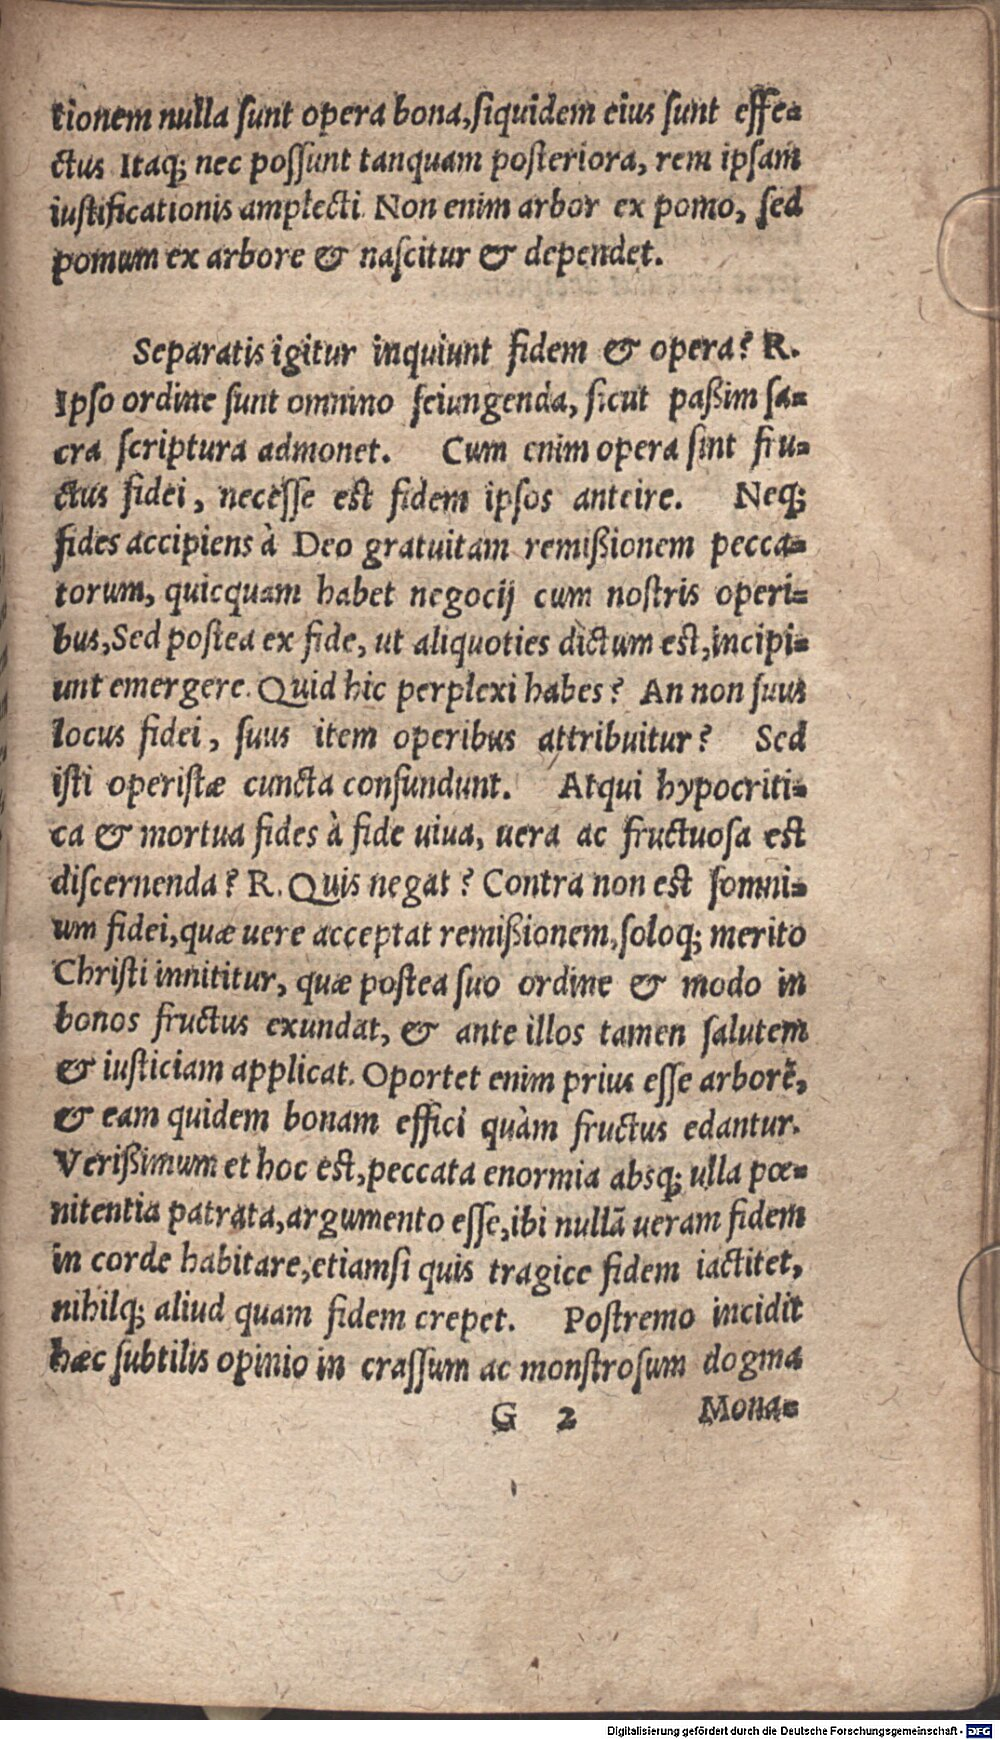 tionem nulla ſunt opera bona, ſiquidem eius ſunt effe-
ctus Itaq; nec poſſunt tanquam poſteriora, rem ipſam
iuſtificationis amplecti Non enim arbor ex pomo, ſed
pomum ex arbore & naſcitur & dependet.
Separatis igitur inquiunt fidem & opera? R.
Ipſo ordine ſunt omnino ſeiungenda, ſicut paßim ſa-
cra ſcriptura admonet. Cum enim opera ſint fru-
ctus fidei, neceſſe eſt fidem ipſos anteire. Neq;
fides accipiens à Deo gratuitam remißionem pecca-
torum, quicquam habet negocij cum noſtris operi-
bus, Sed poſtea ex fide, ut aliquoties dictum eſt, incipi-
unt emergere. Quid hic perplexi habes? An non ſuus
locus fidei, ſuus item operibus attribuitur? Sed
iſti operiſtæ cuncta confundunt. Atqui hypocriti-
ca & mortua fides à fide uiua, uera ac fructuoſa eſt
diſcernenda? R. Quis negat? Contra non eſt ſomni-
um fidei, quæ uere acceptat remißionem, ſoloq; merito
Chriſti innititur, quæ poſtea ſuo ordine & modo in
bonos fructus exundat, & ante illos tamen ſalutem
& iuſticiam applicat. Oportet enim prius eſſe arborẽ,
& eam quidem bonam effici quàm fructus edantur.
Verißimum et hoc eſt, peccata enormia absq; ulla pœ-
nitentia patrata, argumento eſſe, ibi nullã ueram fidem
in corde habitare, etiamſi quis tragice fidem iactitet,
nihilq; aliud quam fidem crepet. Poſtremo incidit
hæc ſubtilis opinio in craſſum ac monſtroſum dogma
G 2 Mona-
Digitalisierung gefördert durch die Deutsche Forschungsgemeinschaft - DFG